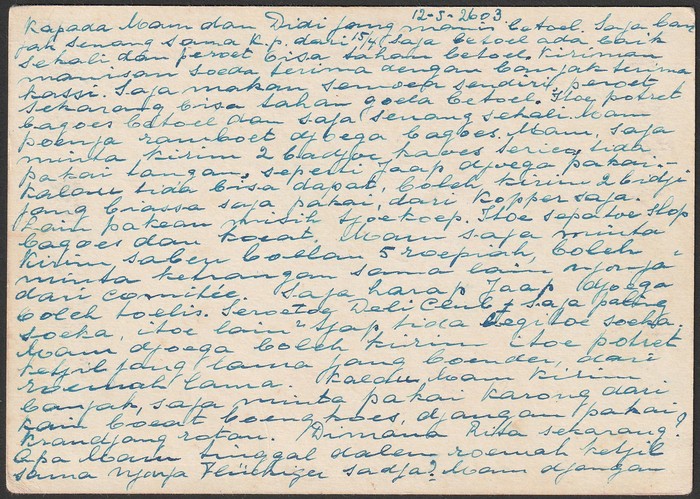 12-5-2603
Kapada Mam dan Didi jang manis betoel. Saja ban-
jak senang sama K.p. dari 15/4 saja betoel ada baik
sekali dan peroet bisa tahan betoel. Kiriman
manisan soeda terima dengan banjak terima
kassi. Saja makan semoea sendiri, peroet
sekarang bisa tahan goela betoel. Itoe potret
bagoes betoel dan saja senang sekali. Mam
poenja ramboet djoega bagoes. Mam, saja
minta kirim 2 badjoe kaoes serieo, tida
pakai tangan, seperti Jaap djoega pakai.-
Kalau tida bisa dapat, boleh kirim 2 bidji
jang biassa saja pakai, dari kopper saja.
Lain pakean misih tjoekoep. Itoe sepatoe slop
bagoes dan koeat. Mam saja minta
kirim saben boelan 5 roepiah, boleh
minta ketrangan sama lain njonja
dari comitée. Saja harap Jaap djoega
boleh toelis. Seroetoe Deli Club saja paling
soeka, itoe lain tjap tida begitoe soeka.
Mam djoega boleh kirim itoe potret
ketjil jang lama jang boender, dari
roemah lama. Kaldu Mam kirim
banjak, saja minta pakai karong dari
kain boeat boengkoes, djangan pakai
krandjang rotan. Dimana Rita sekarang?
Apa Mam tinggal dalem roemah ketjil
sama njonja Flückiger sadja? Mam djangan